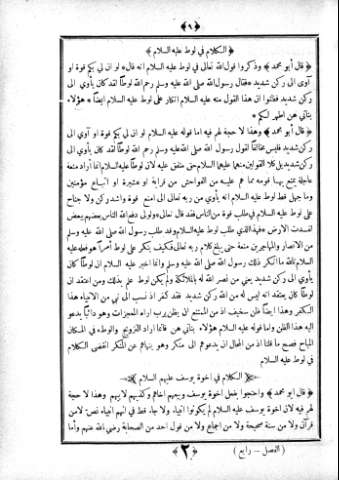 ﴿ ٩ ﴾
﴿ الكلام في لوط عليه السلام ﴾
﴿ قال أبو محمد ﴾ وذكروا قول الله تعالى في لوط عليه السلام انه قال * لو ان لي بكم قوة او
آوى الى ركن شديد * فقال رسول الله صلى الله عليه وسلم رحم الله لوطًا لقد كان يأوى الى
ركن شديد فظنوا ان هذا القول منه عليه السلام انكار على لوط عليه السلام ايضًا * هؤلاء
بناتي هن اطهر لكم *
﴿ قال أبو محمد ﴾ وهذا لا حجة لهم فيه اما قوله عليه السلام لو ان لي بكم قوة او آوى الى
ركن شديد فليس مخالفًا لقول رسول الله صلى الله عليه وسلم رحم الله لوطًا لقد كان يأوى الى
ركن شديد بل كلا القولين منهما عليهما السلام حق متفق عليه لان لوطًا عليه السلام انما اراد منعة
عاجلة يمنع بها قومه مما هم عليه من الفواحش من قرابة او عشيرة او اتباع مؤمنين
وما جهل قط لوط عليه السلام انه يأوى من ربه تعالى الى امنع قوة واشد ركن ولا جناح
على لوط عليه السلام في طلب قوة من الناس فقد قال تعالى * ولولا دفع الله الناس بعضهم ببعض
لفسدت الارض * فهذا الذي طلب لوط عليه السلام وقد طلب رسول الله صلى الله عليه وسلم
من الانصار والمهاجرين منعة حتى يبلغ كلام ربه تعالى فكيف ينكر على لوط أمرًا هو فعله عليه
السلام تالله ما انكر ذلك رسول الله صلى الله عليه وسلم وانما اخبر عليه السلام ان لوطًا كان
يأوى الى ركن شديد يعني من نصر الله له بالملائكة ولم يكن لوط علم بذلك ومن اعتقد ان
لوطًا كان يعتقد انه ليس له من الله ركن شديد فقد كفر اذ نسب الى نبي من الانبياء هذا
الكفر وهذا ايضًا ظن سخيف اذ من الممتنع ان يظن برب اراه المعجزات وهو دائبًا يدعو
اليه هذا الظن واما قوله عليه السلام هؤلاء بناتي هن فانما اراد التزويج والوطء في المكان
المباح فصح ما قلنا اذ من المحال ان يدعوهم الى منكر وهو ينهاهم عن المنكر انقضى الكلام
في لوط عليه السلام
﴿ الكلام في اخوة يوسف عليهم السلام ﴾
﴿ قال أبو محمد ﴾ واحتجوا بفعل اخوة يوسف وبيعهم اخاهم وكذبهم لابيهم وهذا لا حجة
لهم فيه لان اخوة يوسف عليه السلام لم يكونوا انبياء ولا جاء قط في انهم انبياء نص لا من
قرآن ولا من سنة صحيحة ولا من اجماع ولا من قول احد من الصحابة رضي الله عنهم واما
﴿ ٢ ﴾ ( الفصل - رابع )